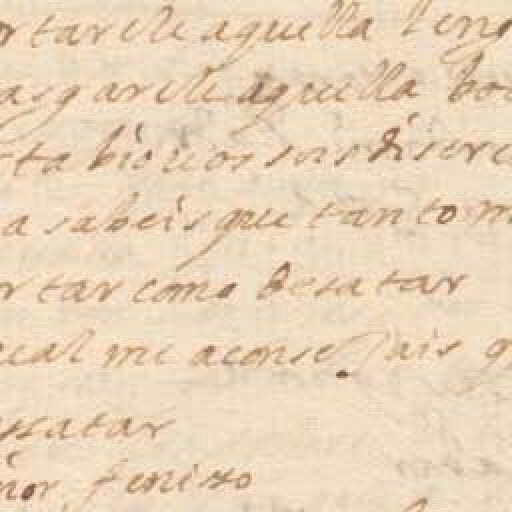 ortarele aquella leng
asgarele aquella bo
sta bicicos sois discre
a sabeis que tanto m
rtar como desatar
cal me aconsejais q
satar
ñor fenizo